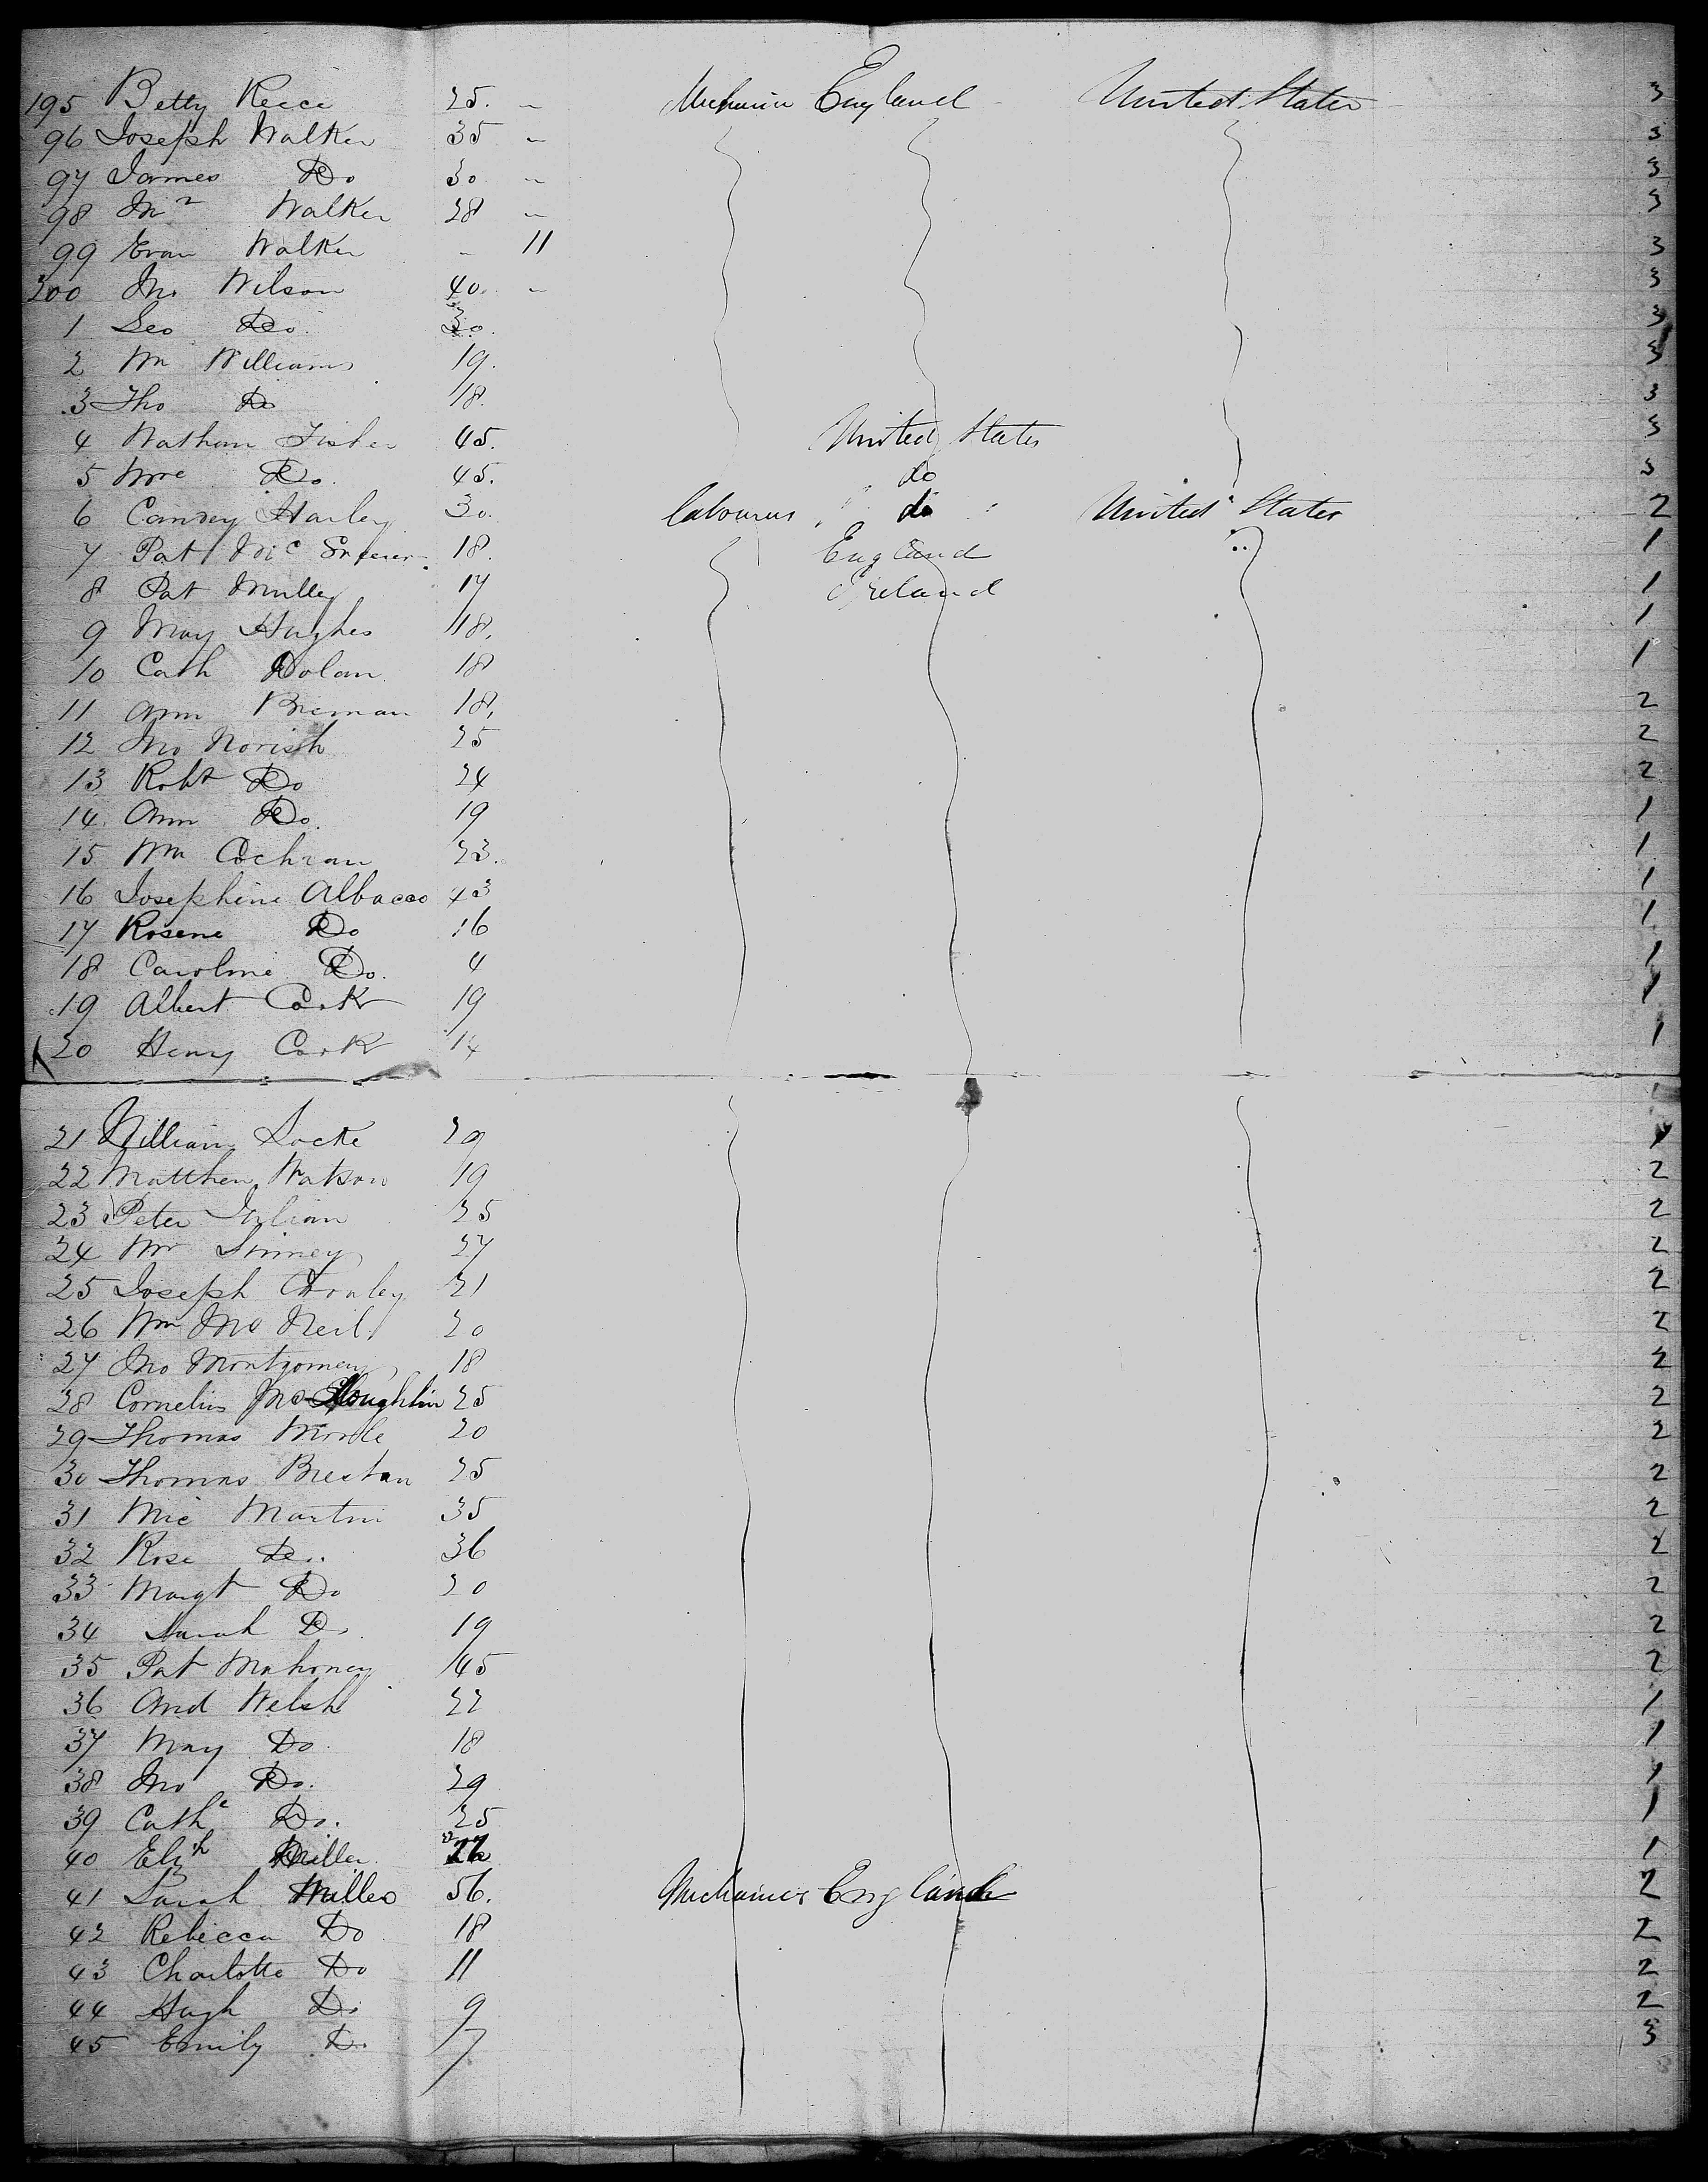 195 Betty Reece 25. - Mechanic England - United States 3
96 Joseph Walker 35 - 3
97 James Do 30 - 3
98 Walker 28 - 3
99 Evan Walker - 11 3
200 Jno Wilson 40. - 3
1 Geo Do. 30. 3
2 Wm Williams 19. 3
3 Tho Do 18. 3
4 Nathan Fisher 45. United States 3
5 Do. 45. do 3
6 Harley 30. labourers do United States 2
7 Pat Mc 18. England 1
8 Pat 17 Ireland 1
9 May Hughes 18. 1
10 Cath Dolan 18 1
11 Ann 18. 2
12 Jno Norish 25 2
13 Robt Do 24 2
14. Ann Do. 19 1
15 Wm Cochran 23. 1
16 Josephine Albacco 43 1
17 Rosene Do 16 1
18 Caroline Do. 4 1
19 Albert Cork 19 1
20 Henry Cork 14 1
21 William Locke 29 1
22 Matthew Watson 19 2
23 Peter 25 2
24 27 2
25 Joseph 21 2
26 Wm Mc Neil 20 2
27 Jno Montgomery 18 2
28 Cornelius Mc Loughlin 25 2
29 Thomas 20 2
30 Thomas 25 2
31 Mic Martin 35 2
32 Rose Do.. 36 2
33 Margt Do 20 2
34 Sarah Do 19 2
35 Pat Mahoney 45 2
36 And Welsh 22 1
37 May Do. 18 1
38 Jno Do. 29 1
39 Cathe Do. 25 1
40 Elizh Miller 1
41 Sarah Miller 56. Mechanics England 2
42 Rebecca Do 18 2
43 Charlotte Do 11 2
44 Hugh Do 9 2
45 Emily Do 7 3